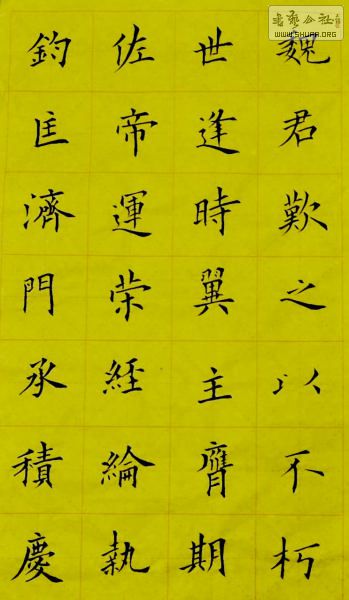 魏君歎之以不朽
世逢時翼主膺期
佐帝運荣經綸執
鈞匡濟門承積慶
書藝公社
WWW.SHUFA.ORG